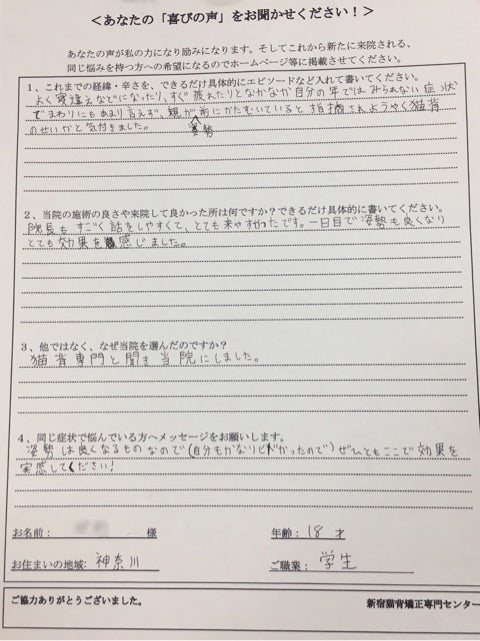 ＜あなたの「喜びの声」をお聞かせください！＞
あなたの声が私の力になり励みになります。そしてこれから新たに来院される、
同じ悩みを持つ方への希望になるのでホームページ等に掲載させてください。
1、これまでの経緯・辛さを、できるだけ具体的にエピソードなど入れて書いてください。
よく寝違えなどになったり、すぐ疲れたりとなかなか自分の年ではみられない症状
でまわりにもあまり言えず、親から前にかたむいていると指摘されようやく猫背
姿勢
のせいかと気付きました。
2、当院の施術の良さや来院して良かった所は何ですか？できるだけ具体的に書いてください。
院長もすごく話をしやすくて、とても来やすかったです。一日目で姿勢も良くなり
とても効果を感じました。
3、他ではなく、なぜ当院を選んだのですか？
猫背専門と聞き当院にしました。
4、同じ症状で悩んでいる方へメッセージをお願いします。
姿勢は良くなるものなので(自分もかなりヒドかったので)ぜひともここで効果を
実感してください！
お名前： 様 年齢：18 才
お住まいの地域：神奈川 ご職業：学生
ご協力ありがとうございました。 新宿猫背矯正専門センター